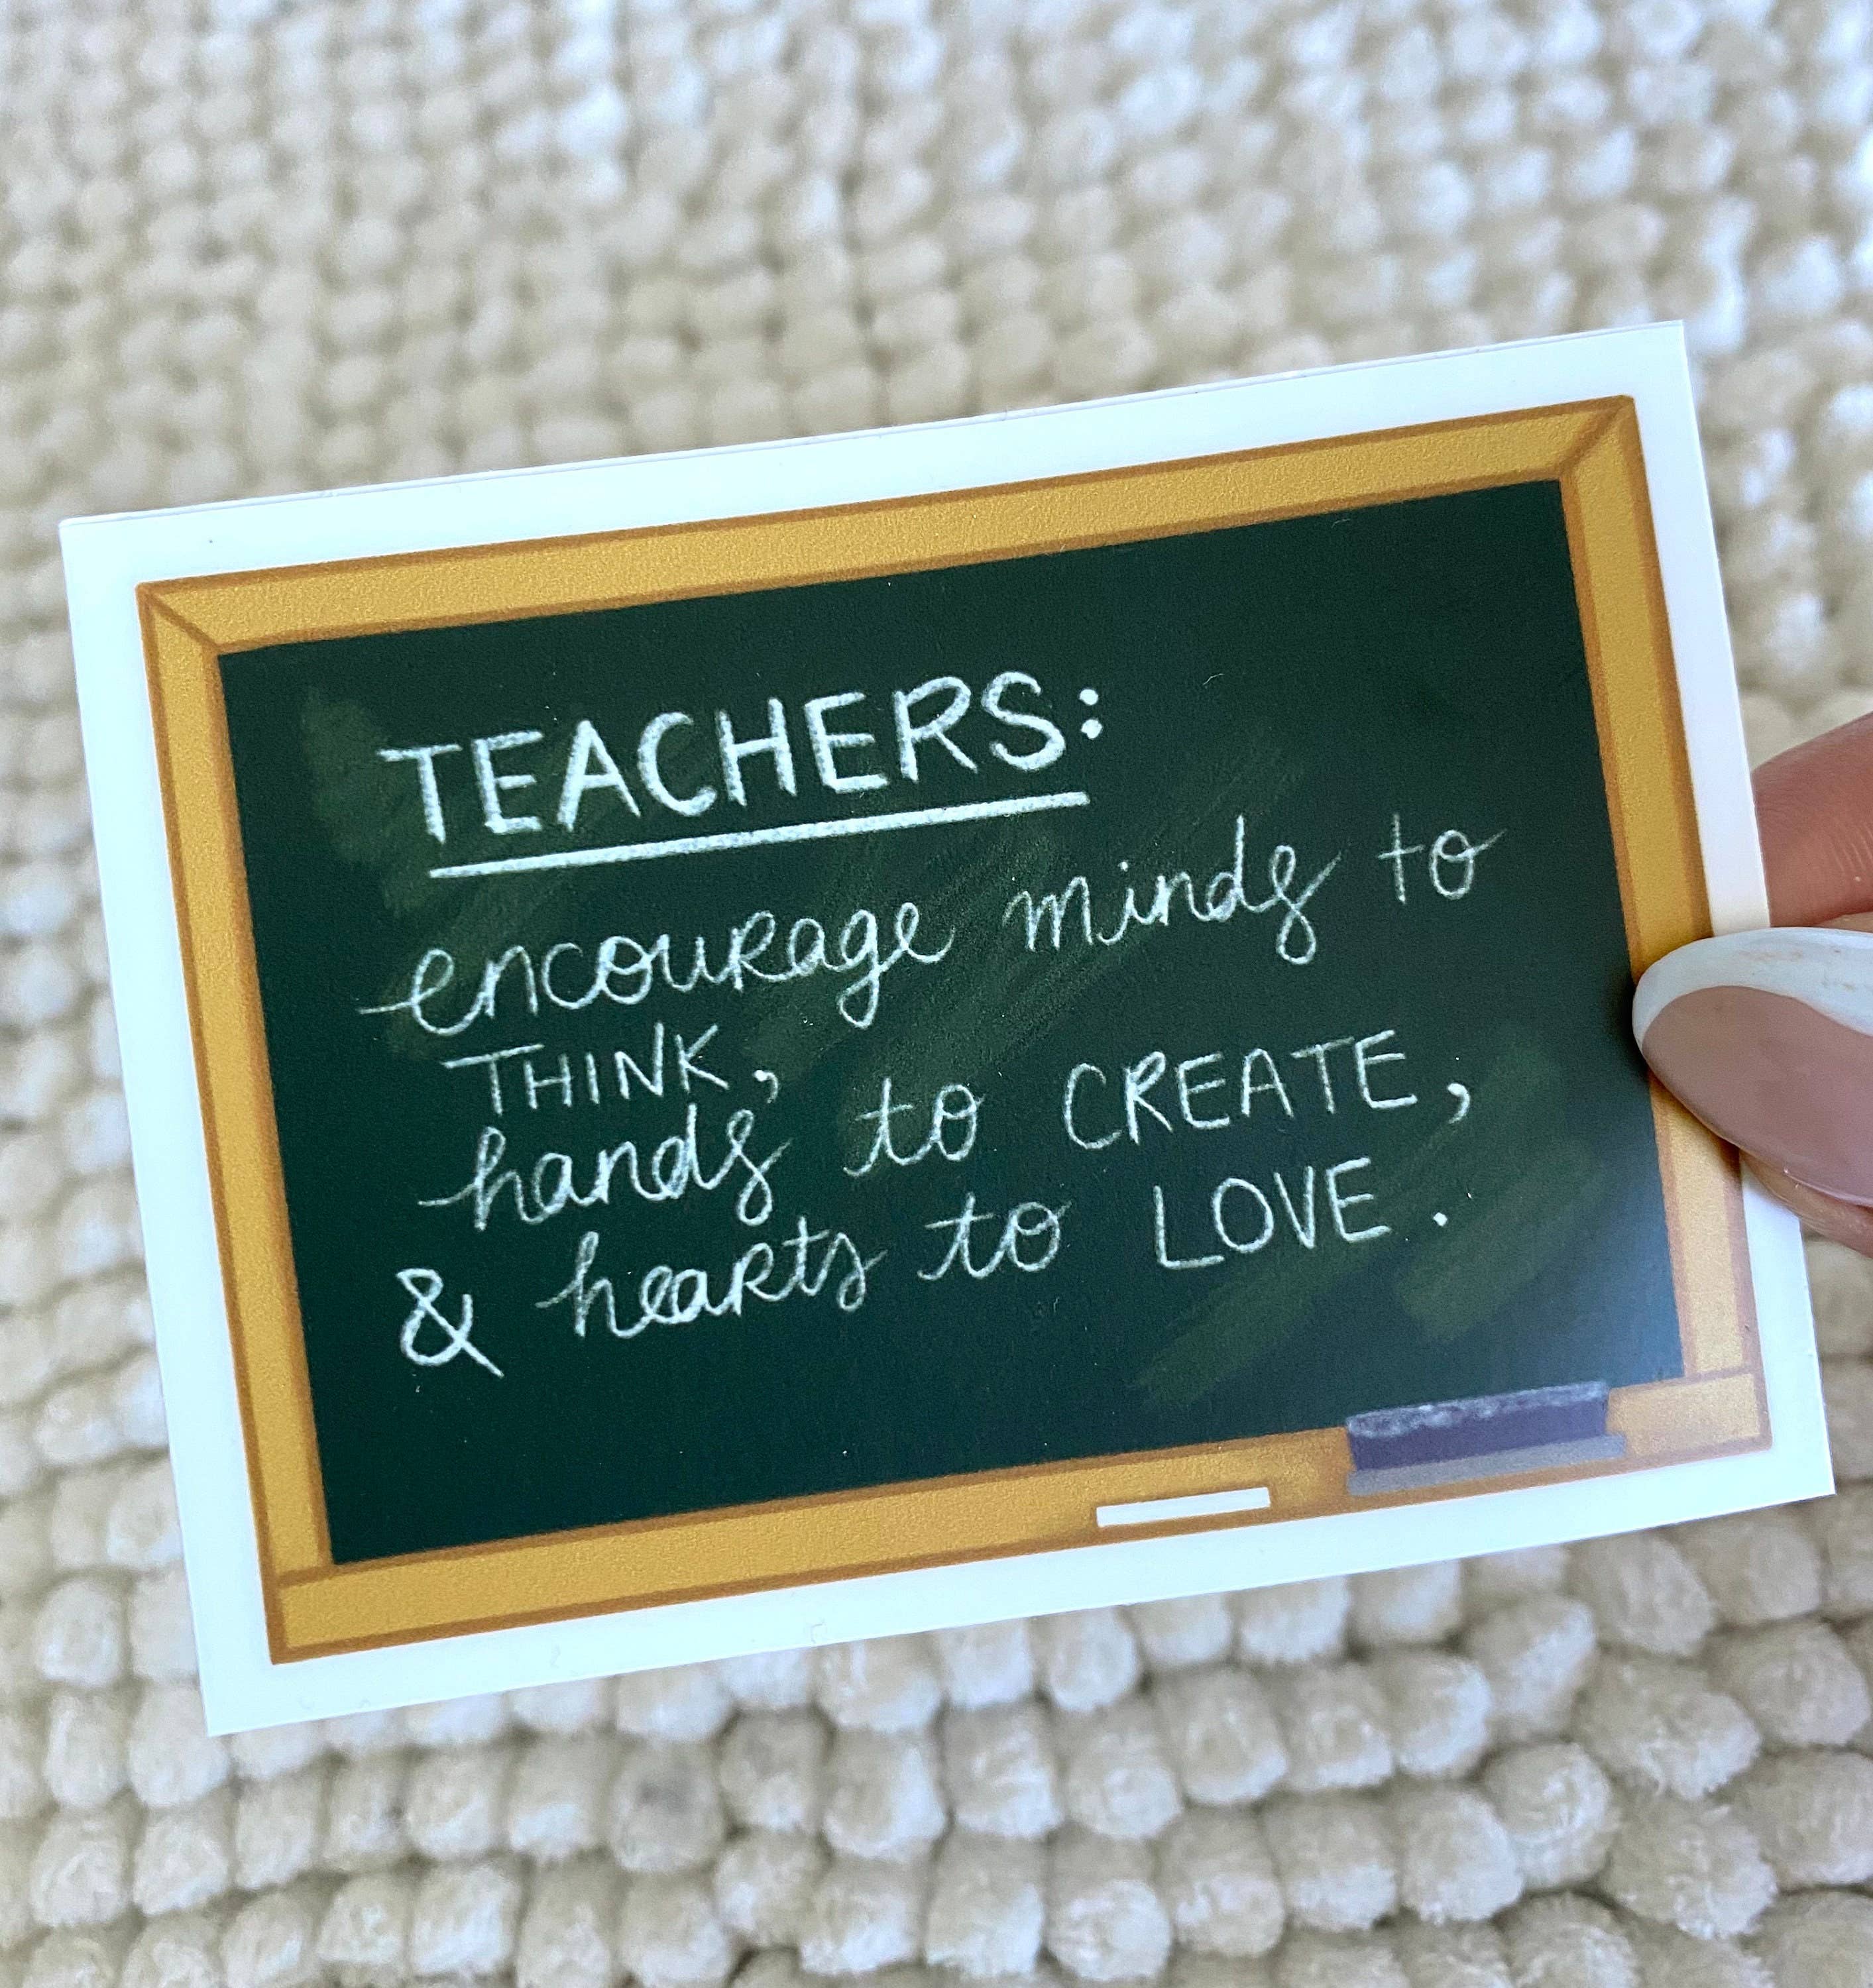 TEACHERS:
encourage minds to
THINK,
hands to CREATE,
& hearts to LOVE.